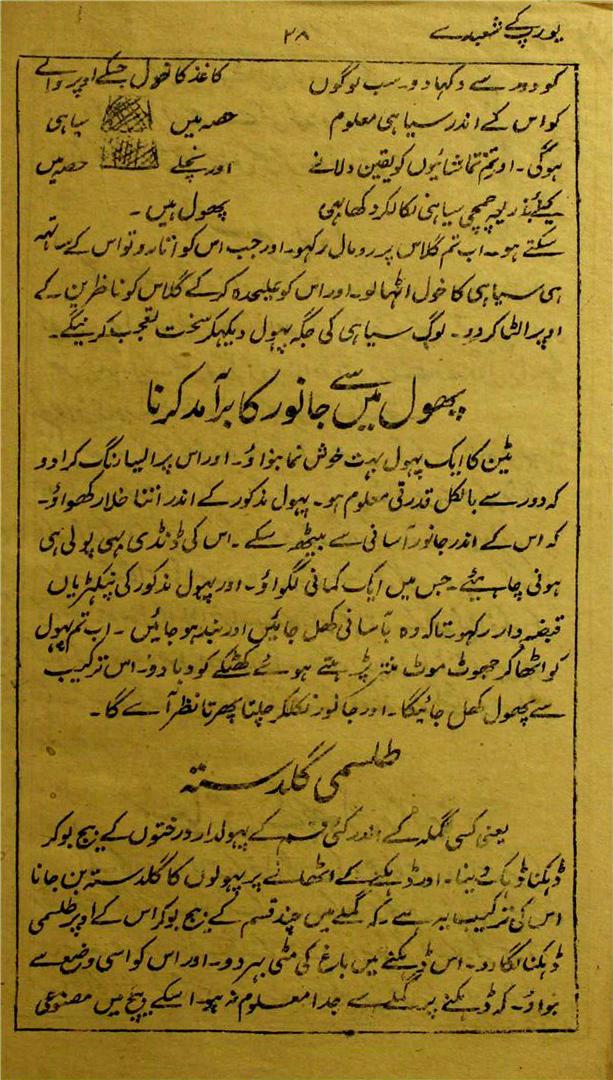 یورپ کے شعبدے
۲۸
کو دور سے دکہا دو۔ سب لوگوں
کو اس کے اندر سیاہی معلوم
ہوگی۔ اور تم تماشائیوں کو یقین دلانے
کیلئے بذریعہ چمچی سیاہی نکالکر دکھا بہی
کاغذ کا خول جسکے اوپر والے
حصہ میں سیاہی
اور نچلے حصہ میں
پھول ہیں۔
سکتے ہو۔ اب تم گلاس پر رومال رکہو۔ اور جب اس کو اتارو تو اس کے ساتہہ
ہی سیاہی کا خول اٹہا لو۔ اور اس کو علیحدہ کر کے گلاس کو ناظرین کے
اوپر الٹا کر دو۔ لوگ سیاہی کی جگہ پہول دیکہکر سخت تعجب کرینگے۔
پھول میں سے جانور کا برآمد کرنا
ٹین کا ایک پہول بہت خوش نما بنواؤ۔ اور اس پر ایسا رنگ کرا دو
کہ دور سے بالکل قدرتی معلوم ہو۔ پہول مذکور کے اندر اتنا خلا رکھواؤ۔
کہ اس کے اندر جانور آسانی سے بیٹھ سکے۔ اس کی ڈنڈی بہی پولی ہی
ہونی چاہیئے۔ جس میں ایک کمانی لگواؤ۔ اور پہول مذکور کی پنکہڑیاں
قبضہ دار رکہو تاکہ وہ بآسانی کھل جائیں اور بند ہو جائیں۔ اب تم پہول
کو اٹھا کر جھوٹ موٹ منتر پڑہتے ہوئے کھٹکے کو دبا دو۔ اس ترکیب
سے پھول کھل جائیگا۔ اور جانور نکلکر چلتا پھرتا نظر آئے گا۔
طلسمی گلدستہ
یعنی کسی گملہ کے اندر کئی قسم کے پہولدار درختوں کے بیج بو کر
ڈہکنا ڈہانک دینا۔ اور ڈہکنے کے اٹھانے پر پہولوں کا گلدستہ بن جانا
اس کی ترکیب یہ ہے۔ کہ گملے میں چند قسم کے بیج بو کر اس کے اوپر طلسمی
ڈہکنا لگا دو۔ اس ڈہکنے میں باغ کی مٹی بہر دو۔ اور اس کو اسی وضع سے
بنواؤ۔ کہ ڈہکنے پر گملے سے جدا معلوم نہ ہو۔ اسکے بیچ میں مصنوعی